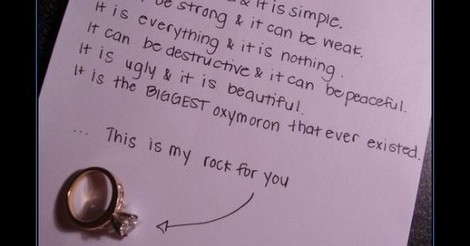 & it is simple.
be strong & it can be weak.
It is everything & it is nothing.
It can be destructive & it can be peaceful.
It is ugly & it is beautiful.
It is the BIGGEST oxymoron that ever existed.
... This is my rock for you